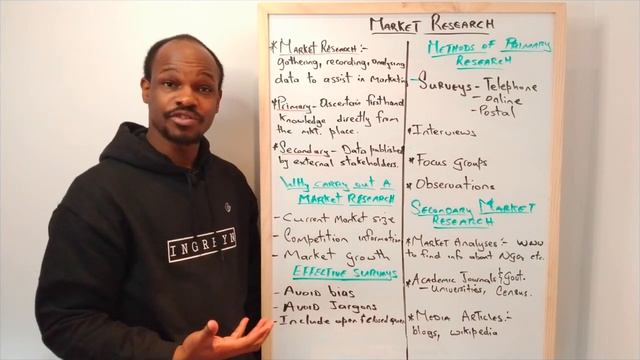 MARKET RESEARCH
* MARKET RESEARCH:-
gathering, recording, analysing
data to assist in Marketin
* Primary - Ascertain firsthand
Knowledge directly from
the mkt. place.
* Secondary - Data published
by external stakeholders.
WHY CARRY OUT A
MARKET RESEARCH
- Current Market size
- Competition information
- Market growth
EFFECTIVE SURVEYS
- AVOID bias
- AVOID Jargons
- Include open & closed ques
METHODS OF PRIMARY
RESEARCH
- SURVEYS - Telephone
- Online
- Postal
* Interviews
* Focus groups
* Observations
SECONDARY MARKET
RESEARCH
* Market Analyses:- WWW
to find info about NGOs etc.
* Academic Journals & Govt.
- Universities, Census.
* MEDIA ARTICLES:-
blogs, wikipedia